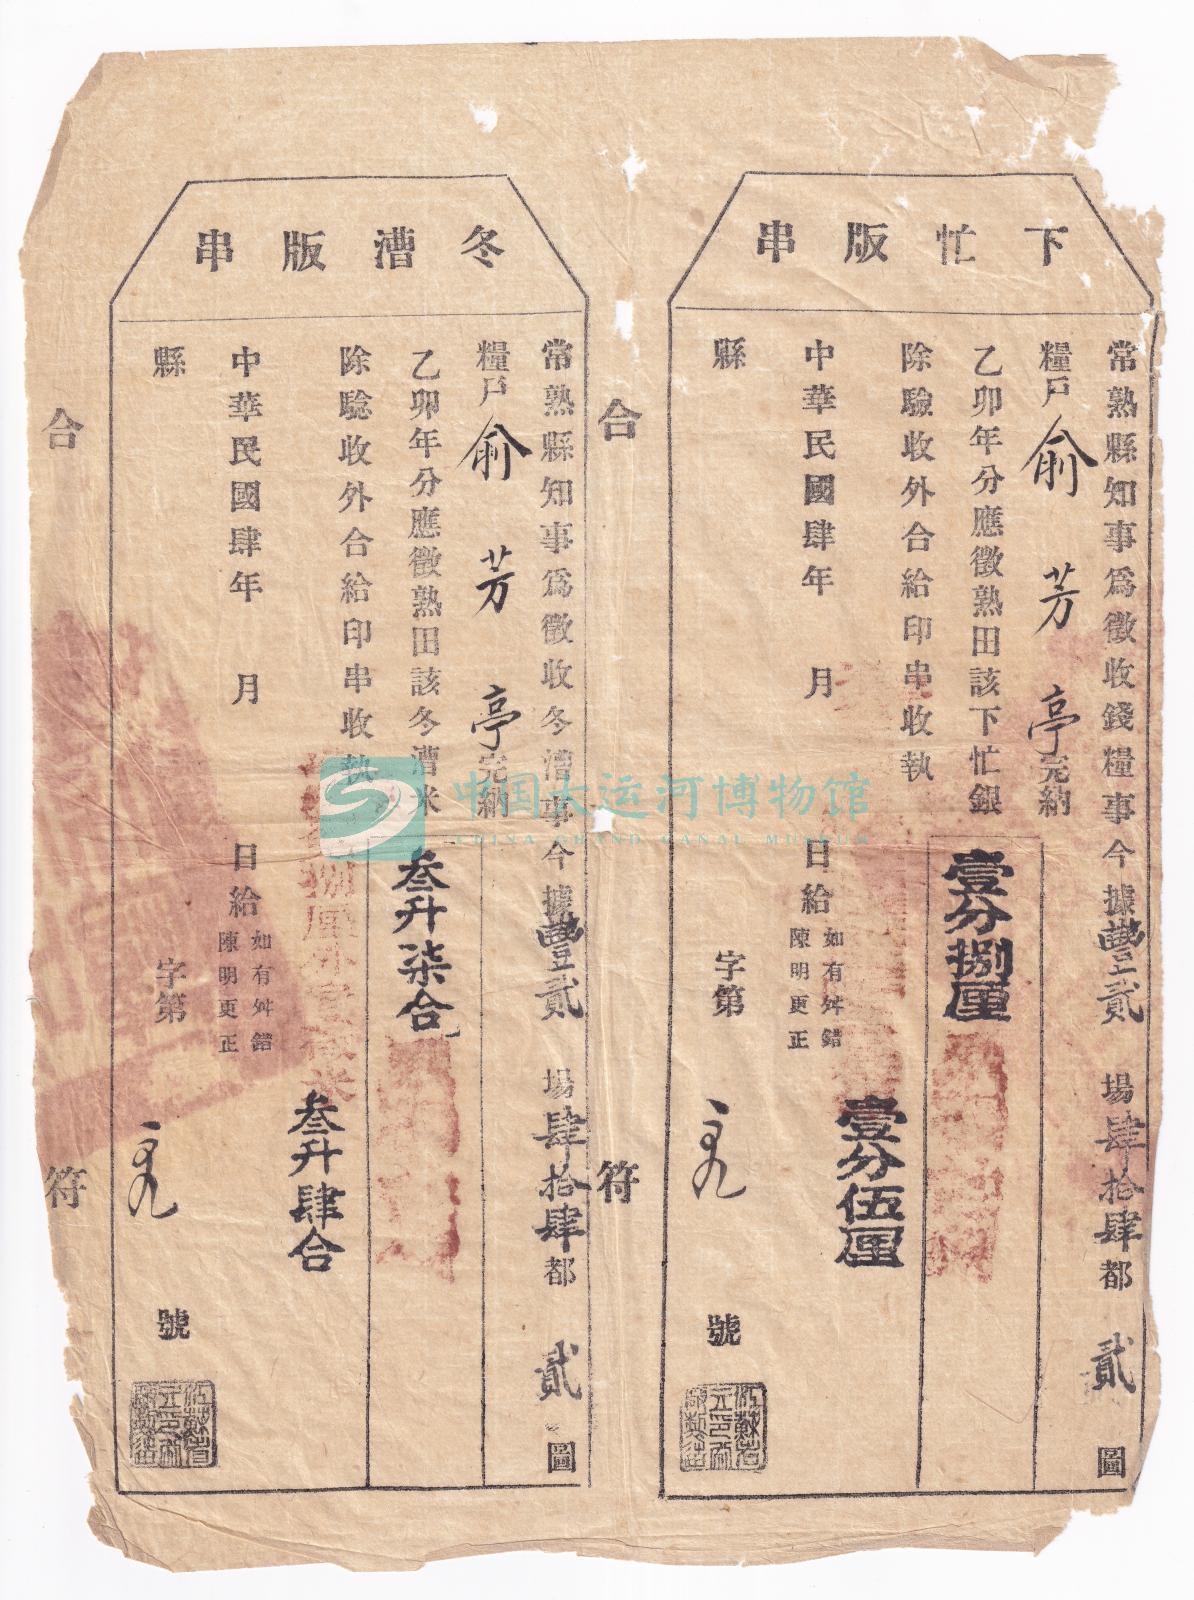 下忙版串
常熟縣知事爲徵收錢糧事今據豐貳場肆拾肆都貳圖
糧戶俞芳亭完納
乙卯年分應徵熟田該下忙銀壹分捌厘
除驗收外合給印串收執
壹分伍厘
中華民國肆年 月 日給
如有舛錯
陳明更正
縣 字第 號
合符
冬漕版串
常熟縣知事爲徵收冬漕事今據豐貳場肆拾肆都貳圖
糧戶俞芳亭完納
乙卯年分應徵熟田該冬漕米叁升柒合
除驗收外合給印串收執
叁升肆合
中華民國肆年 月 日給
如有舛錯
陳明更正
縣 字第 號
合符
中国大运河博物馆
CHINA GRAND CANAL MUSEUM